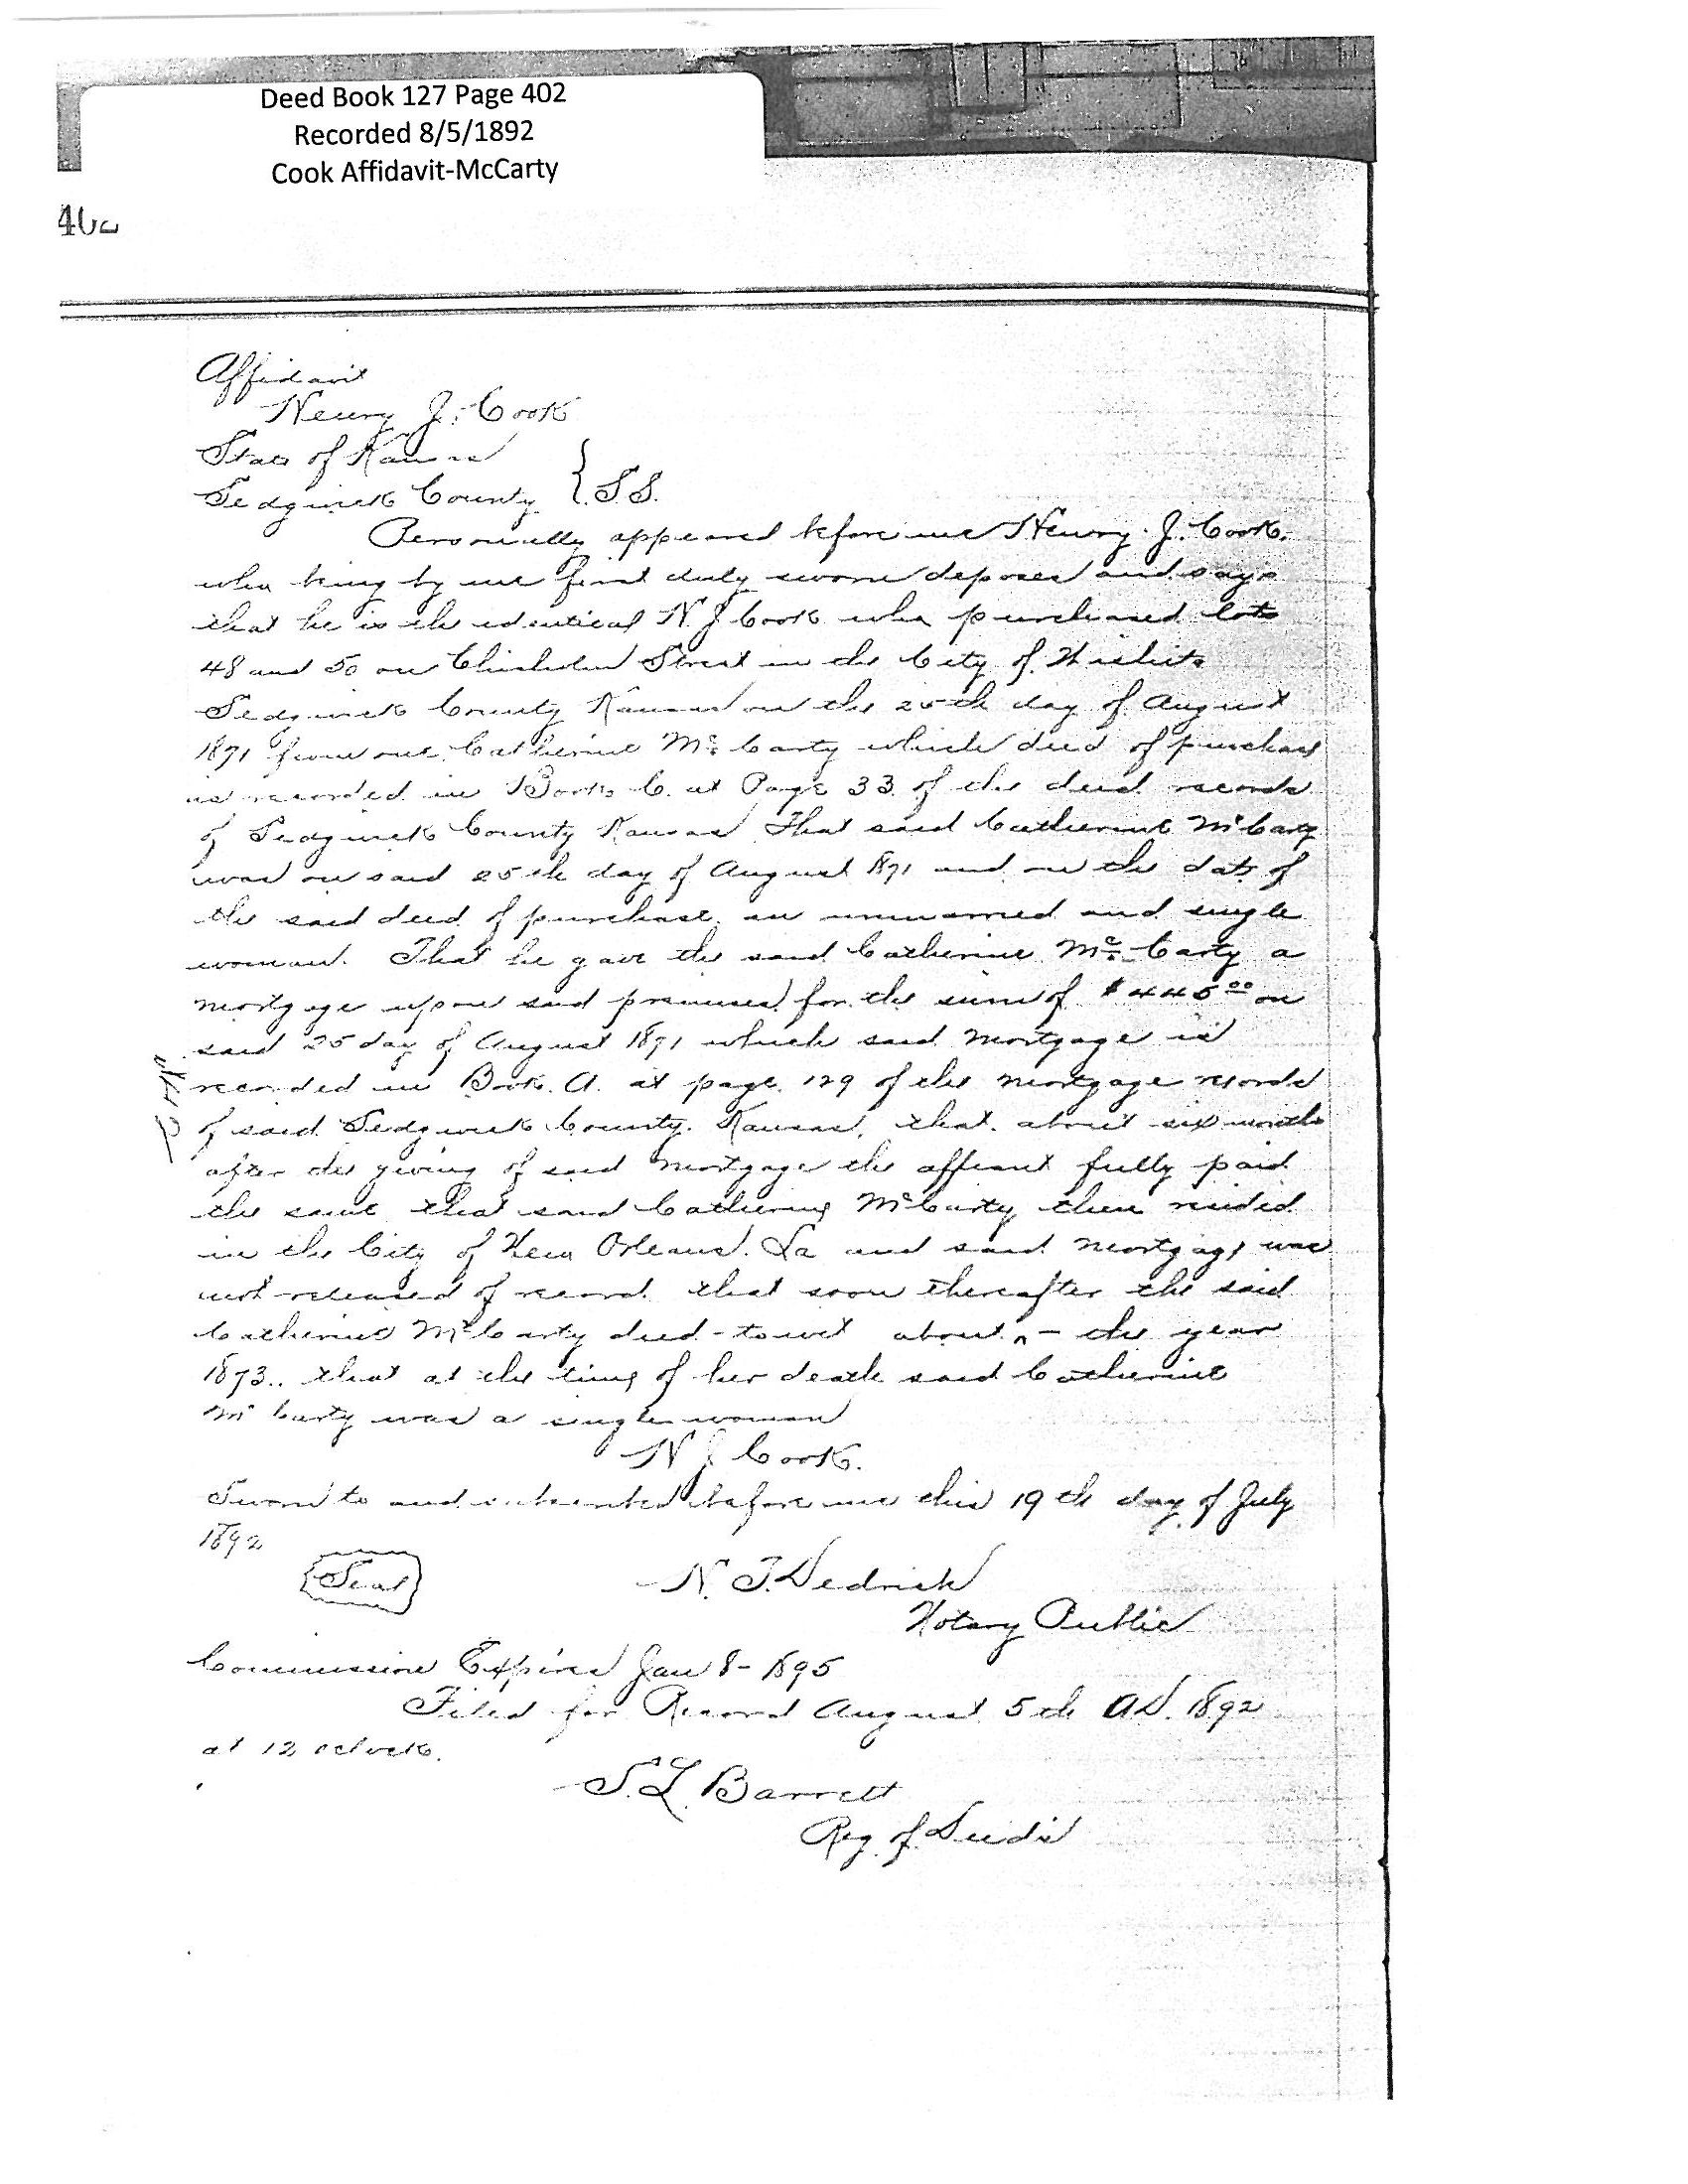 Deed Book 127 Page 402
Recorded 8/5/1892
Cook Affidavit-McCarty
402
Affidavit
Henry J. Cook
State of Kansas
Sedgwick County } S.S.
Personally appeared before me Henry J. Cook.
who being by me first duly sworn deposes and says
that he is the identical H. J Cook who purchased lots
48 and 50 on Chisholm Street in the City of Wichita
Sedgwick County Kansas on the 25th day of August
1871 from one Catherine Mc Carty which deed of purchase
is recorded in Book C. at Page 33 of the deed records
of Sedgwick County Kansas That said Catherine McCarty
was on said 25th day of August 1871 and on the date of
the said deed of purchase. an unmarried and single
woman. That he gave the said Catherine Mc Carty a
mortgage upon said premises for the sum of $445 00 on
said 25 day of August 1871 which said mortgage is
recorded in Book. A. at page. 129 of the mortgage records
of said Sedgwick County. Kansas, that. about six months
after the giving of said mortgage the affiant fully paid
the same that said Catherine McCarty then resided
in the City of New Orleans. La and said mortgage was
not released of record that soon thereafter the said
Catherine McCarty died - towit about - the year
1873.. that at the time of her death said Catherine
Mc Carty was a single woman
H J Cook.
Sworn to and subscribed before me this 19th day of July
1892
Seal
N. T. Dedrick
Notary Public
Commission Expires Jan 8 - 1895
Filed for Record August 5th A.D. 1892
at 12 oclock.
S. L. Barrett
Reg. of Deeds